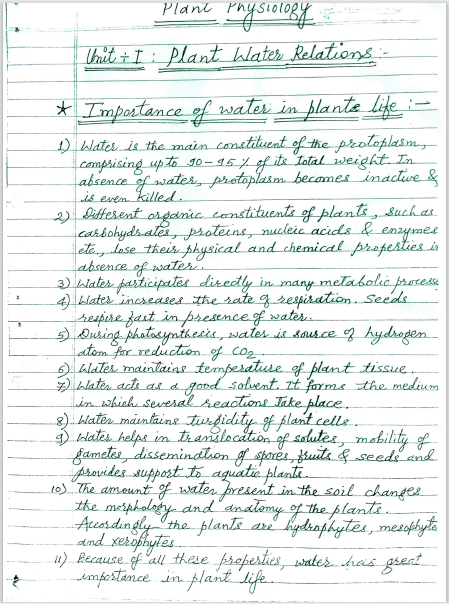 Plant Physiology
Unit ÷ I : Plant Water Relations :-
* Importance of water in plants life :-
1) Water is the main constituent of the protoplasm,
comprising up to 90-95% of its total weight. In
absence of water, protoplasm becomes inactive &
is even killed.
2) Different organic constituents of plants, such as
carbohydrates, proteins, nucleic acids & enzymes
etc., lose their physical and chemical properties in
absence of water.
3) Water participates directly in many metabolic process.
4) Water increases the rate of respiration. Seeds
respire fast in presence of water.
5) During photosynthesis, water is source of hydrogen
atom for reduction of CO2.
6) Water maintains temperature of plant tissue.
7) Water acts as a good solvent. It forms the medium
in which several reactions take place.
8) Water maintains turgidity of plant cells.
9) Water helps in translocation of solutes, mobility of
gametes, dissemination of spores, fruits & seeds and
provides support to aquatic plants.
10) The amount of water present in the soil changes
the morphology and anatomy of the plants.
Accordingly the plants are hydrophytes, mesophyte
and xerophytes.
11) Because of all these properties, water has great
importance in plant life.